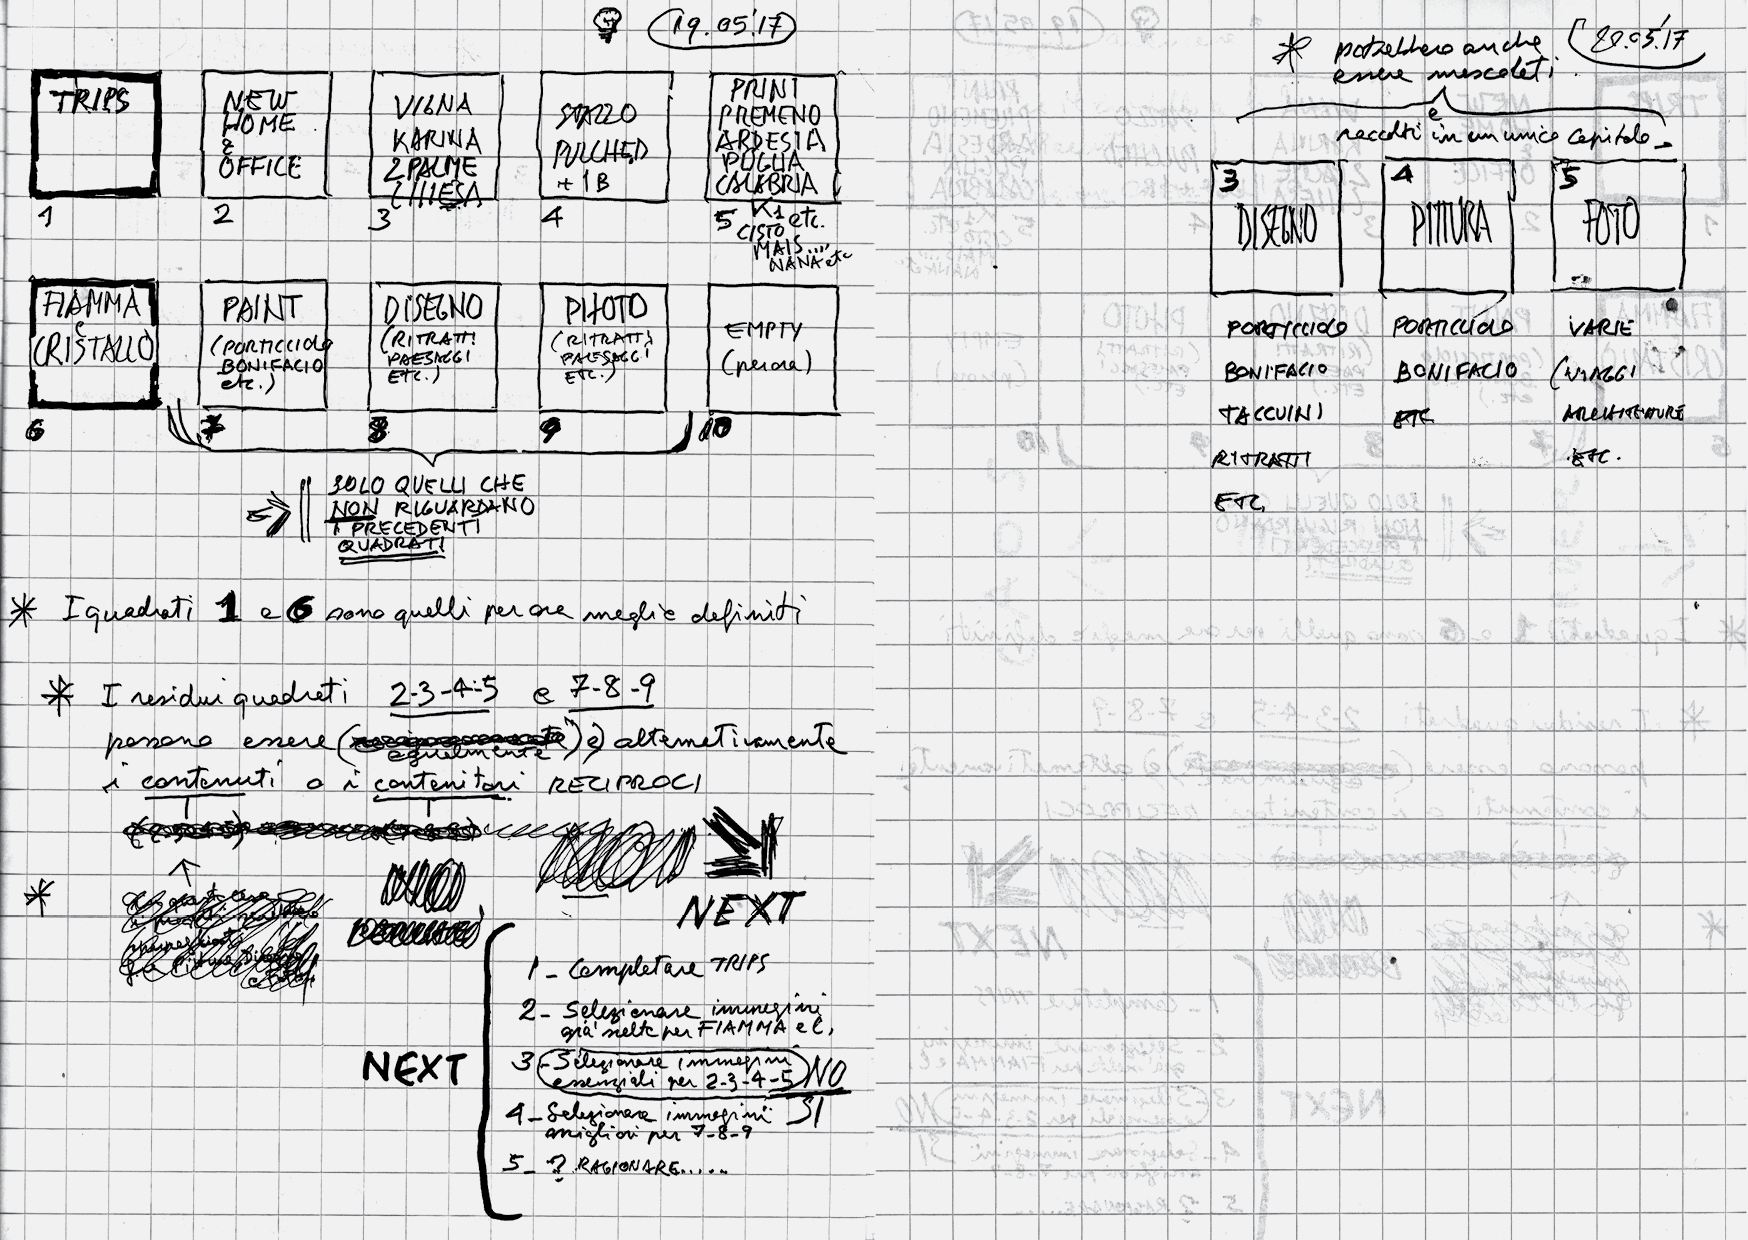 19.05.'17
TRIPS
1
NEW
HOME
&
OFFICE
2
VIGNA
KARINA
2 PALME
CHIESA
3
STAZZO
PULCHED
+ 1B
4
PRINT
PREMENO
ARDESIA
PUGLIA
CALABRIA
5
K1 etc.
CISTO
MAIS....
NANA etc
FIAMMA
e
CRISTALLO
6
PAINT
(PORTICCIOLO
BONIFACIO
etc.)
7
DISEGNO
(RITRATTI
PAESAGGI
ETC.)
8
PHOTO
(RITRATTI
PAESAGGI
ETC.)
9
EMPTY
(per ora)
10
SOLO QUELLI CHE
NON RIGUARDANO
I PRECEDENTI
QUADRATI
* I quadrati 1 e 6 sono quelli per ora meglio definiti
* I residui quadrati 2-3-4-5 e 7-8-9
possono essere (egualmente) e) alternativamente
i contenuti o i contenitori RECIPROCI
*
NEXT
NEXT
1 - Completare TRIPS
2 - Selezionare immagini
già scelte per FIAMMA e C.
3 - Selezionare immagini
essenziali per 2-3-4-5 NO
4 - Selezionare immagini SI
migliori per 7-8-9
5 - ? RAGIONARE.....
* potrebbero anche
essere mescolati.
20.05.'17
e
raccolti in un unico capitolo -
3
DISEGNO
4
PITTURA
5
FOTO
PORTICCIOLO
BONIFACIO
TACCUINI
RITRATTI
ETC.
PORTICCIOLO
BONIFACIO
ETC.
VARIE
(VIAGGI
ARCHITETTURE
ETC.